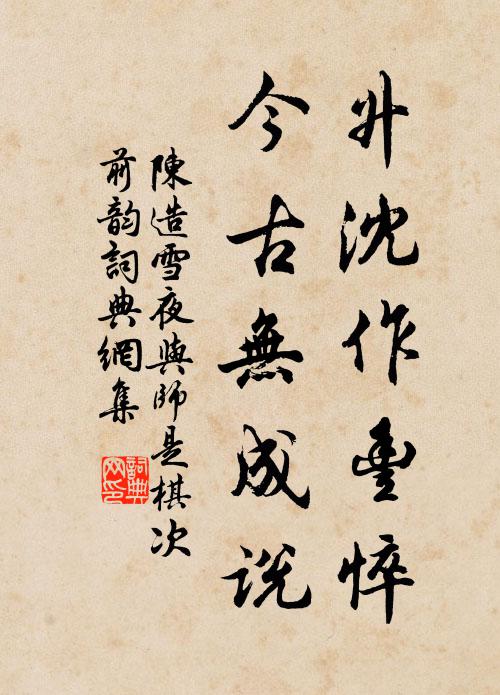 升沈作豐悴
今古無成說
陳造雪夜與師是棋次
前韵詞典網集
詞典
网印